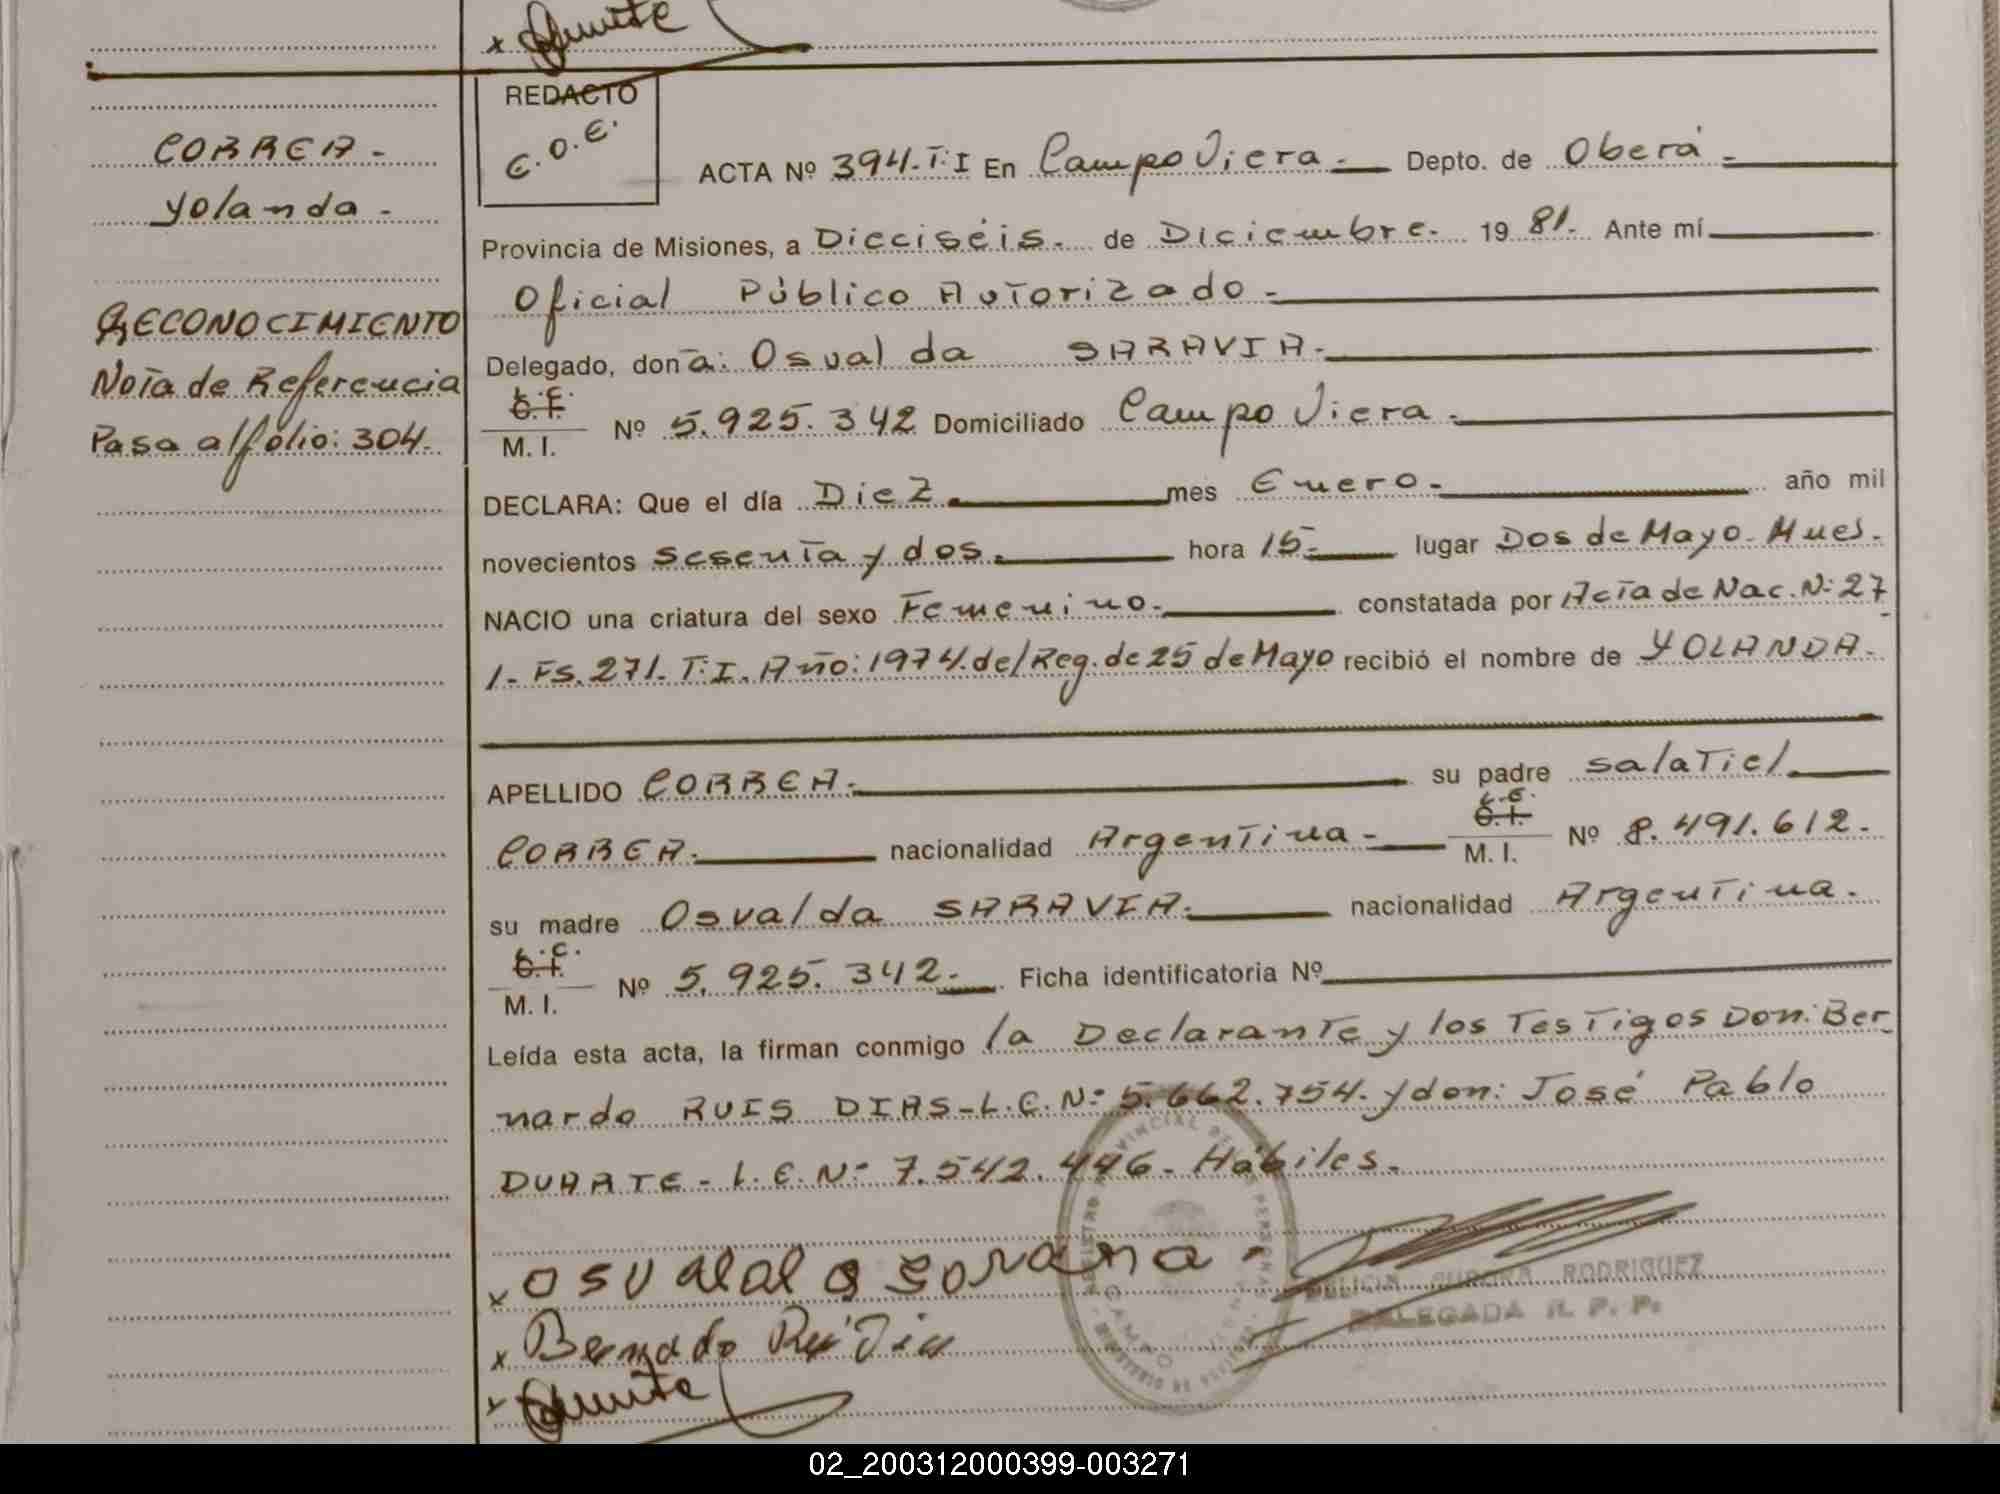 CORREA.-
Yolanda.-
RECONOCIMIENTO
Nota de Referencia
Pasa al folio: 304.-
REDACTO
E.O.E.
ACTA Nº 394.T:I En Campo Viera.- Depto. de Oberá.-
Provincia de Misiones, a Dieciséis. de Diciembre. 19 81. Ante mí
Oficial Público Autorizado.-
Delegado, don a: Osvalda SARAVIA.-
L.C.
C.I.
M. I. Nº 5.925.342 Domiciliado Campo Viera.-
DECLARA: Que el día Diez mes Enero.- año mil
novecientos sesenta y dos. hora 15.- lugar Dos de Mayo. Mnes.-
NACIO una criatura del sexo Femenino.- constatada por Acta de Nac. Nº 27
1.- Fs. 271. T:I. Año: 1974. del Reg. de 25 de Mayo recibió el nombre de YOLANDA.-
APELLIDO CORREA.- su padre Salatiel
CORREA.- nacionalidad Argentina.- L.E. C.I. M. I. Nº 8.491.612.-
su madre Osvalda SARAVIA.- nacionalidad Argentina.-
L.C.
C.I.
M. I. Nº 5.925.342.- Ficha identificatoria Nº
Leída esta acta, la firman conmigo la Declarante y los Testigos Don: Ber
nardo RUIS DIAS-L.E.Nº 5.662.754. y don: José Pablo
DUARTE-L.E.Nº 7.542.446. Hábiles.-
REGISTRO PROVINCIAL DE LAS PERSONAS
CAMPO VIERA
x Osvalda
x Bernardo
FELICIA AURORA RODRIGUEZ
DELEGADA R. P. P.
02_200312000399-003271